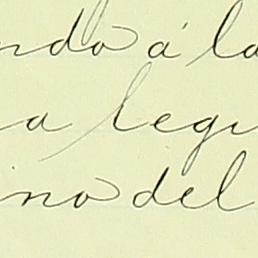 ndo á la
a legu
ino del